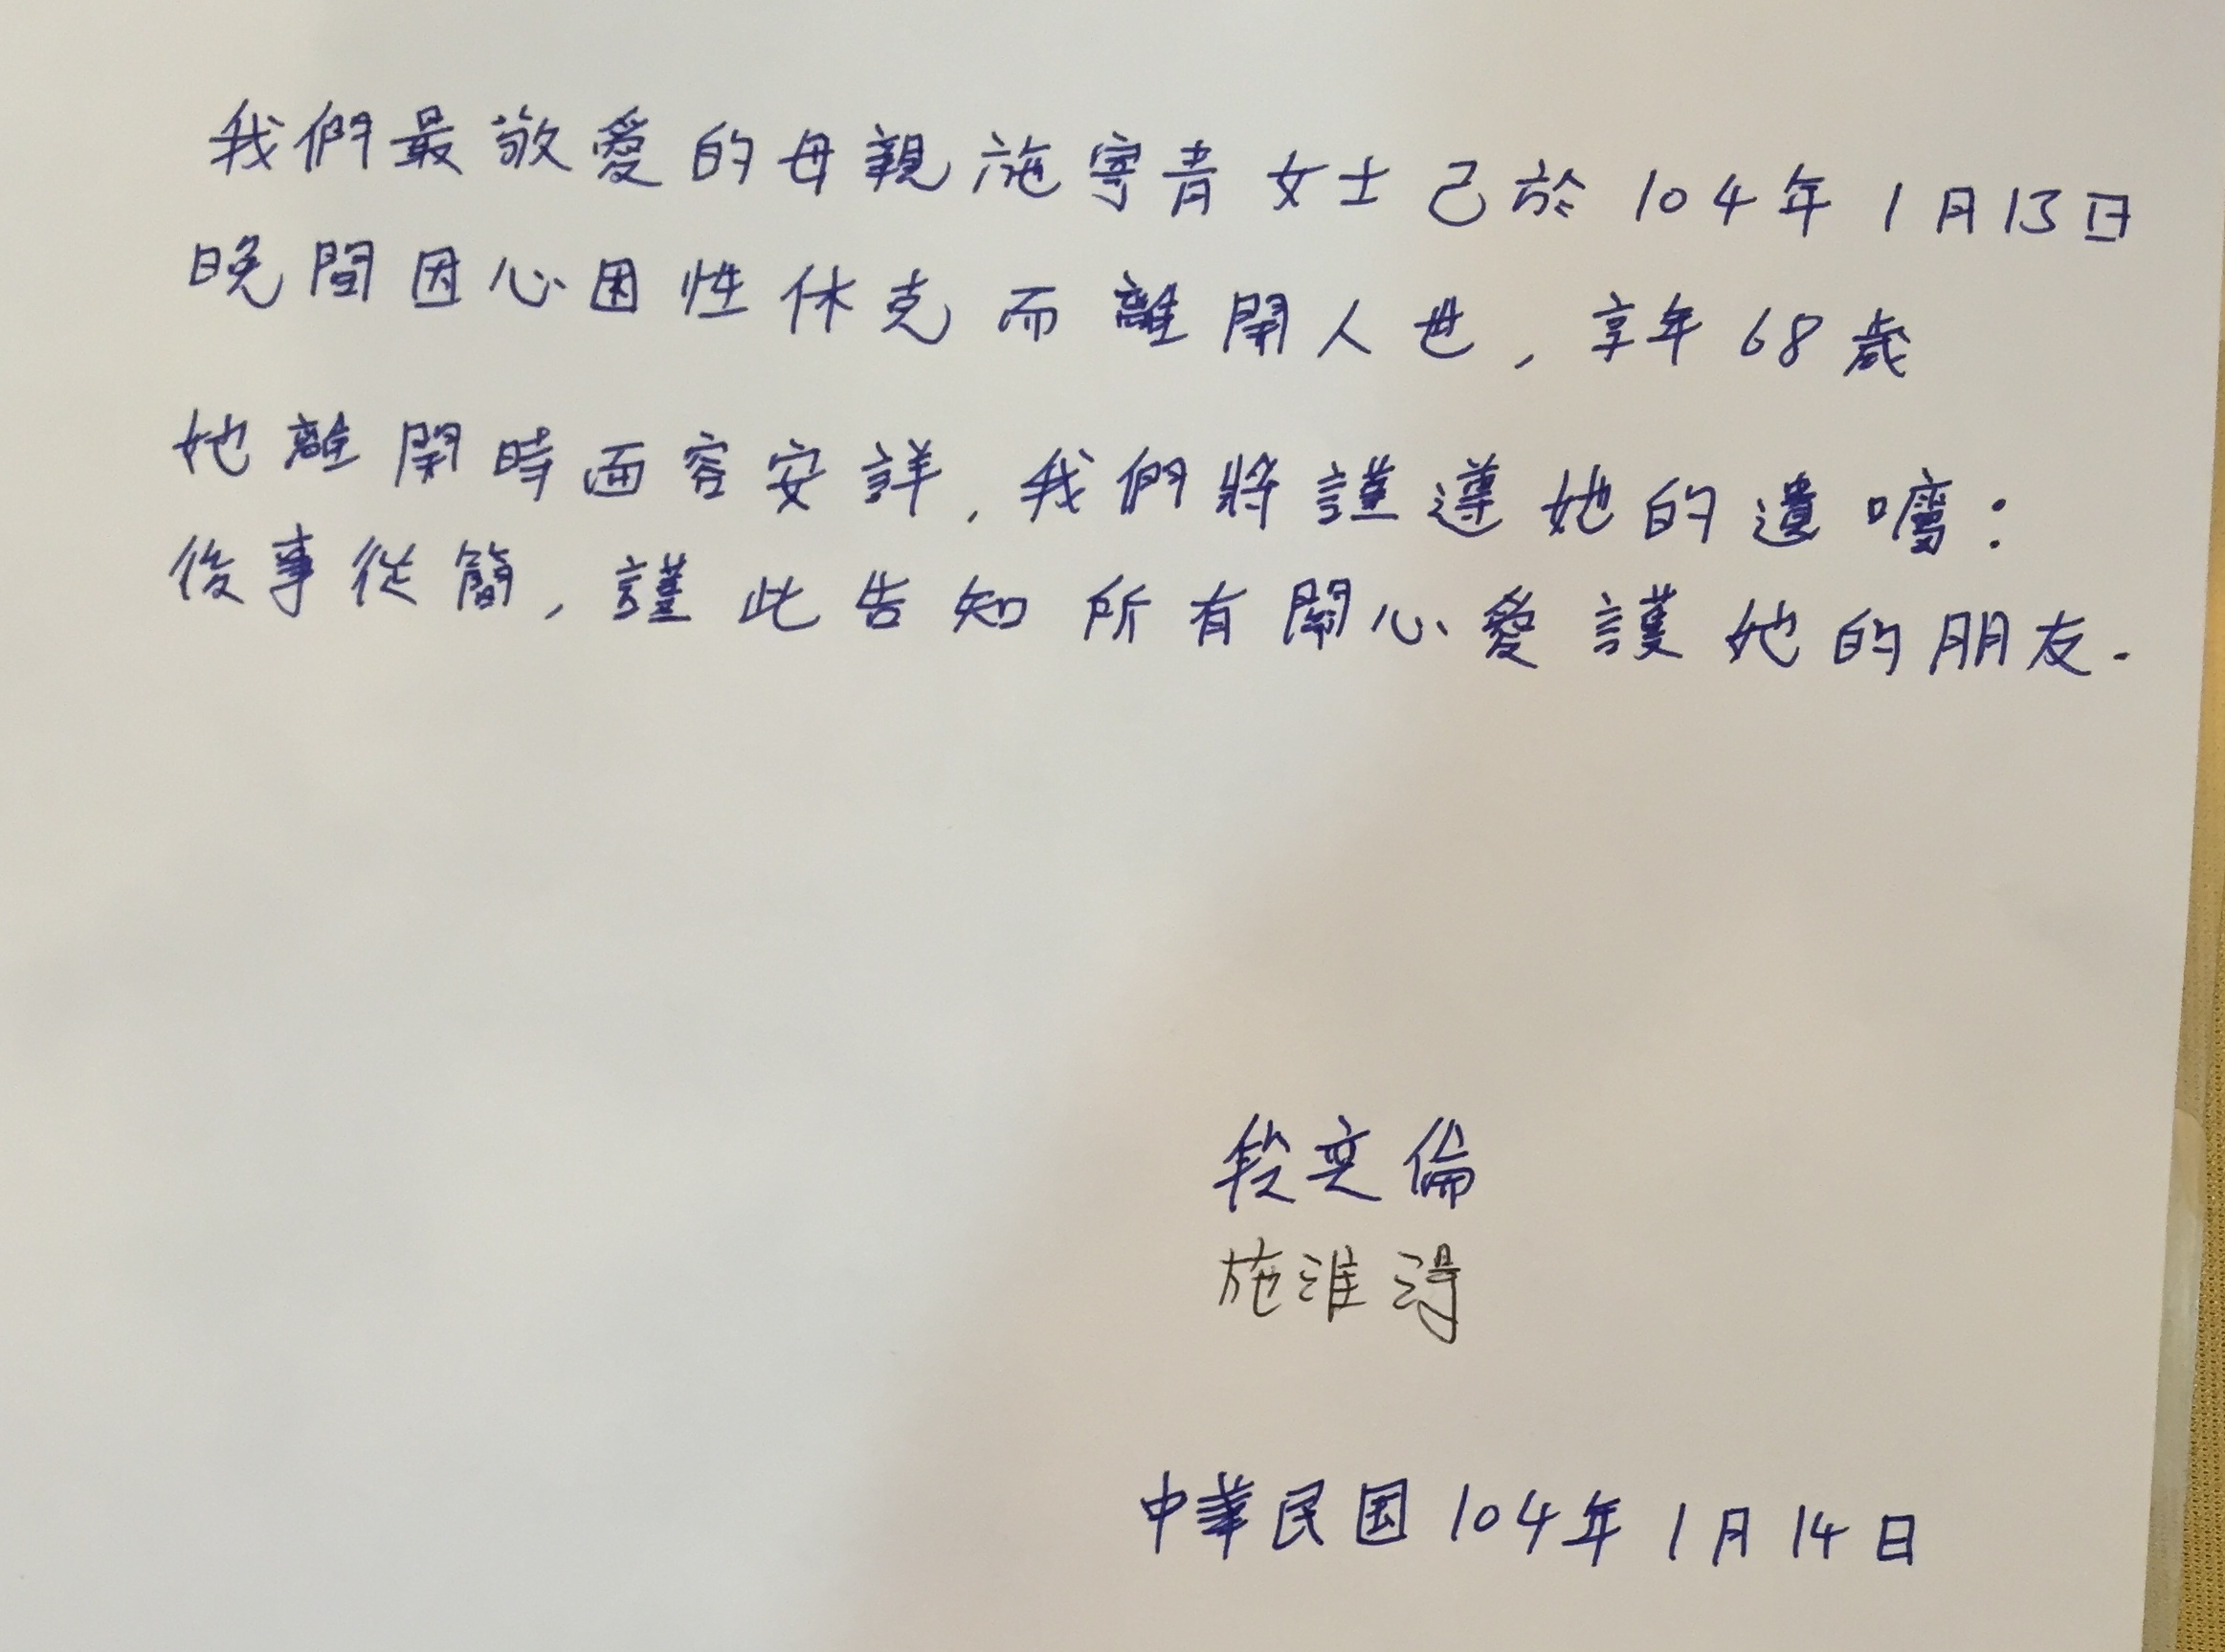 我們最敬愛的母親施寄青女士已於104年1月13日
晚間因心因性休克而離開人世,享年68歲
她離開時面容安詳,我們將謹遵她的遺囑:
後事從簡,謹此告知所有關心愛護她的朋友.
段奕倫
施淮淂
中華民国104年1月14日